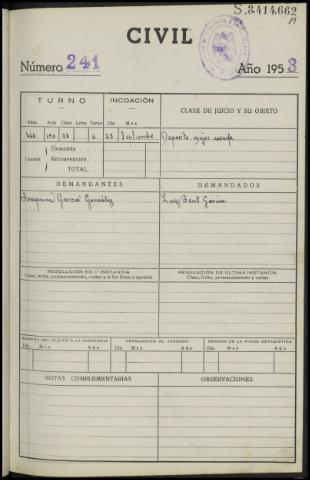 S.3414.662
19
CIVIL
Número 241
Año 1953
TURNO
INCOACIÓN
CLASE DE JUICIO Y SU OBJETO
Núm. Acto Clase Letra Tarea Día Mes
23 6 23 Septiembre Deposito mujer casada
Demanda
Cuantía Reconvención
TOTAL
DEMANDANTES
DEMANDADOS
Joaquina García González
Luis Bent Garcia
RESOLUCIÓN EN 1.ª INSTANCIA
RESOLUCIÓN DE ÚLTIMA INSTANCIA
Clase, fecha, pronunciamiento, costas y si fué firme o apelada
Clase, fecha, pronunciamiento y costas
DEVOLUCIÓN AL JUZGADO
REMESA DE LA FICHA ESTADÍSTICA
Día Mes Año Día Mes Año Día Mes Año
NOTAS COMPLEMENTARIAS
OBSERVACIONES